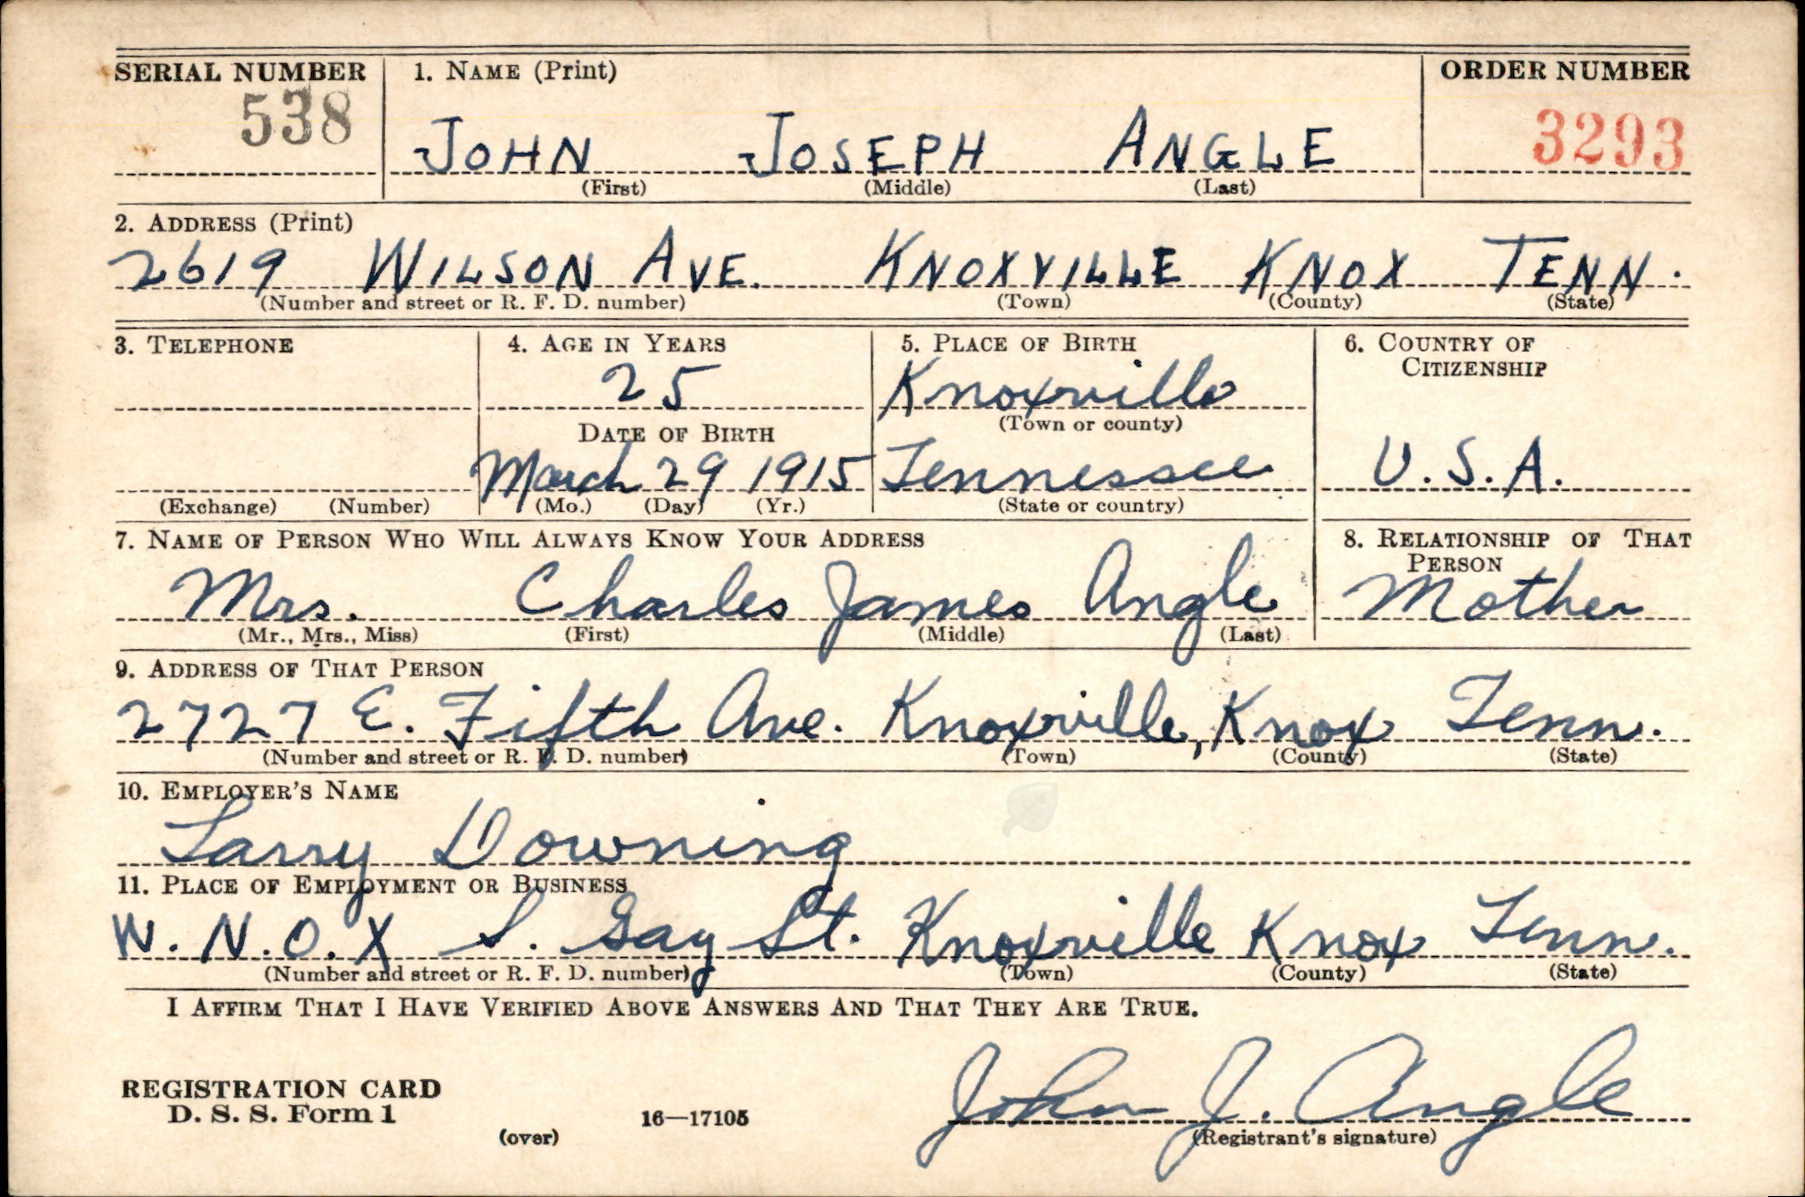 SERIAL NUMBER 1. NAME (Print) ORDER NUMBER
538 JOHN JOSEPH ANGLE 3293
(First) (Middle) (Last)
2. ADDRESS (Print)
2619 WILSON AVE. KNOXVILLE KNOX TENN.
(Number and street or R. F. D. number) (Town) (County) (State)
3. TELEPHONE 4. AGE IN YEARS 5. PLACE OF BIRTH 6. COUNTRY OF
CITIZENSHIP
25 Knoxville
(Town or county)
DATE OF BIRTH
March 29 1915 Tennessee U.S.A.
(Exchange) (Number) (Mo.) (Day) (Yr.) (State or country)
7. NAME OF PERSON WHO WILL ALWAYS KNOW YOUR ADDRESS 8. RELATIONSHIP OF THAT
PERSON
Mrs. Charles James Angle Mother
(Mr., Mrs., Miss) (First) (Middle) (Last)
9. ADDRESS OF THAT PERSON
2727 E. Fifth Ave. Knoxville, Knox Tenn.
(Number and street or R. F. D. number) (Town) (County) (State)
10. EMPLOYER'S NAME
Larry Downing
11. PLACE OF EMPLOYMENT OR BUSINESS
W.N.O.X S. Gay St. Knoxville Knox Tenn.
(Number and street or R. F. D. number) (Town) (County) (State)
I AFFIRM THAT I HAVE VERIFIED ABOVE ANSWERS AND THAT THEY ARE TRUE.
John J. Angle
REGISTRATION CARD
D. S. S. Form 1 16—17105
(over) (Registrant's signature)